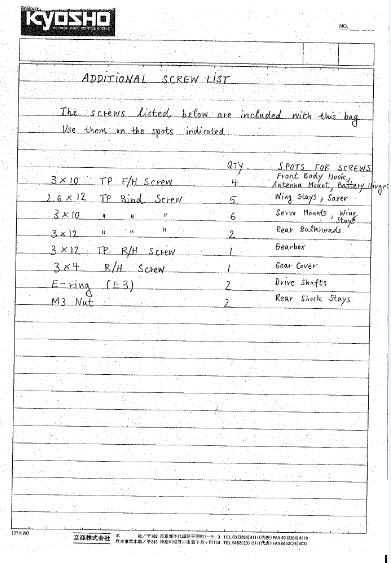 KYOSHO
NO.
ADDITIONAL SCREW LIST
The screws listed below are included with this bag.
Use them on the spots indicated.
QTY SPOTS FOR SCREWS
3 × 10 TP F/H Screw 4 Front Body Mount, Antenna Mount, Battery Hanger
2.6 × 12 TP Bind Screw 5 Wing Stays, Saver
3 × 10 " " " 6 Servo Mounts, Wing Stays
3 × 12 " " " 2 Rear Bulkheads
3 × 12 TP R/H Screw 1 Gearbox
3 × 4 R/H Screw 1 Gear Cover
E-ring (E3) 2 Drive Shafts
M3 Nut 2 Rear Shock Stays
京商株式会社